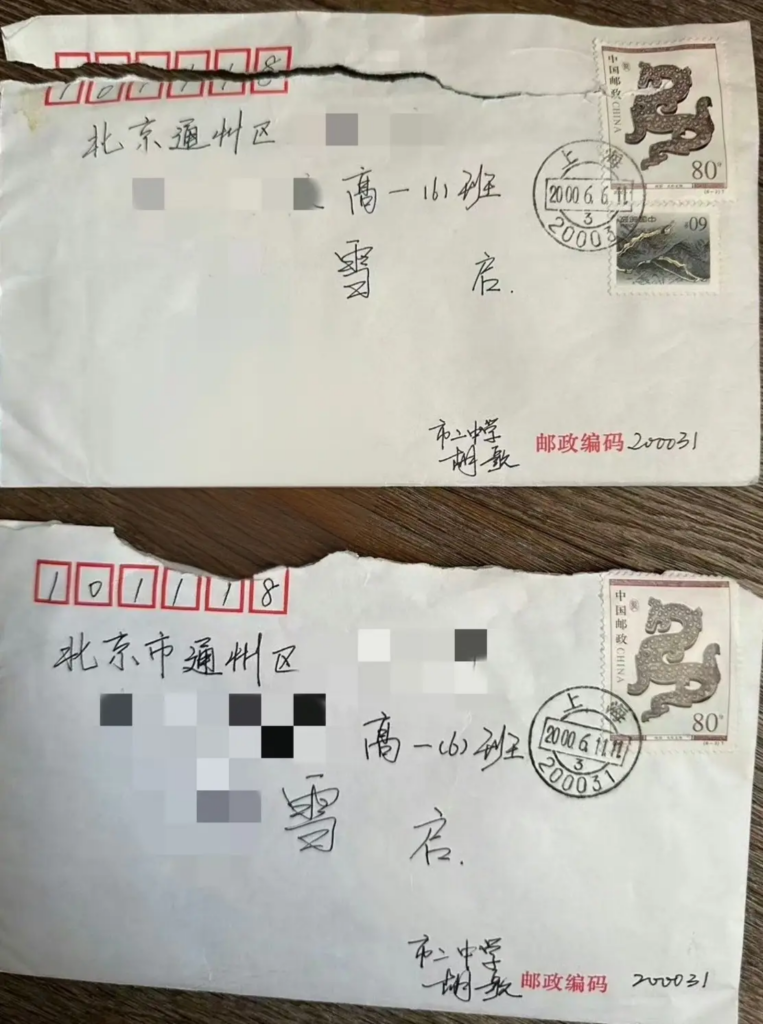 101118
中国邮政 CHINA
80分
北京通州区
高一(6)班
上海
2000.6.6.11
3
200031
中国邮政
60分
雪 启.
市二中学
胡歌
邮政编码 200031
101118
中国邮政 CHINA
80分
北京市通州区
高一(6)班
上海
2000.6.11.11
3
200031
雪 启.
市二中学
胡歌
邮政编码 200031